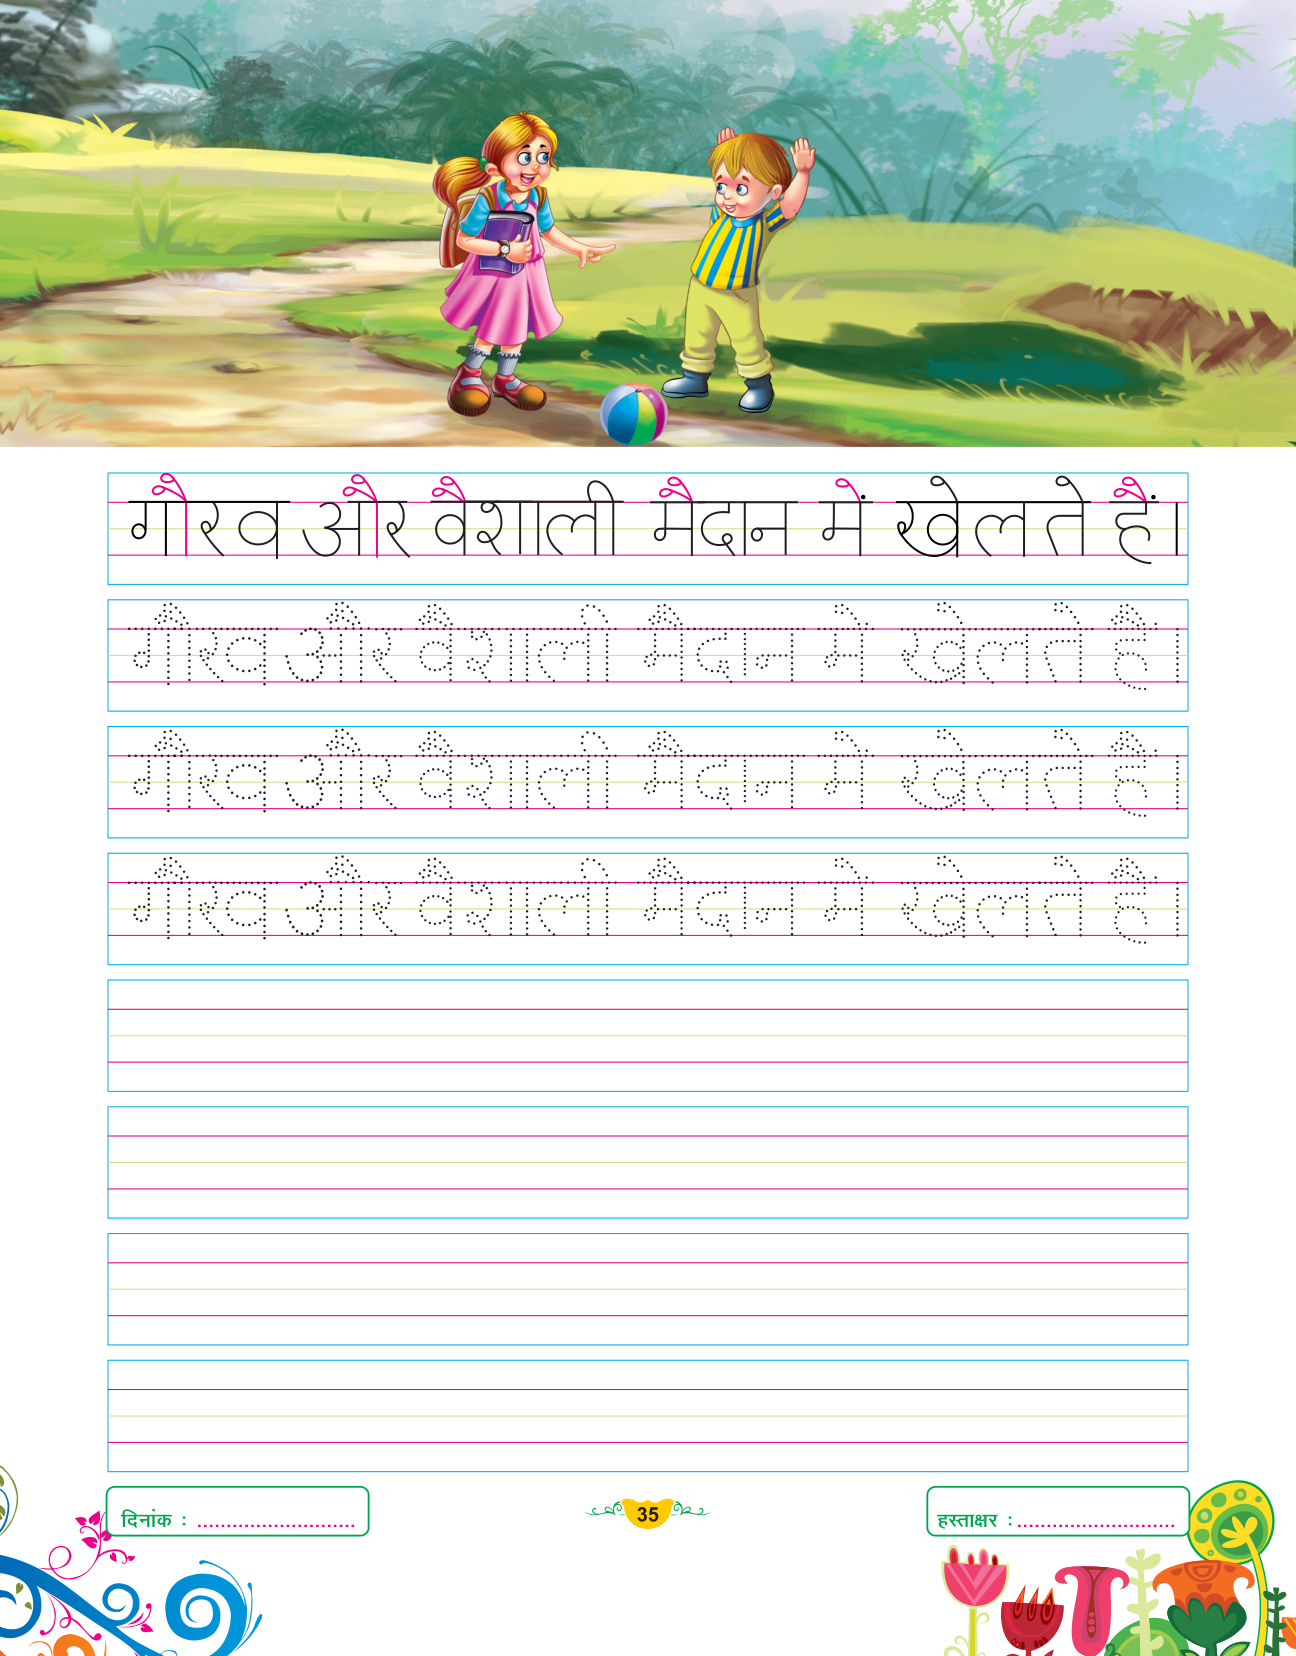 गौरव और वैशाली मैदान में खेलते हैं।
गौरव और वैशाली मैदान में खेलते हैं।
गौरव और वैशाली मैदान में खेलते हैं।
गौरव और वैशाली मैदान में खेलते हैं।
दिनांक : .......................... 35 हस्ताक्षर : ..........................